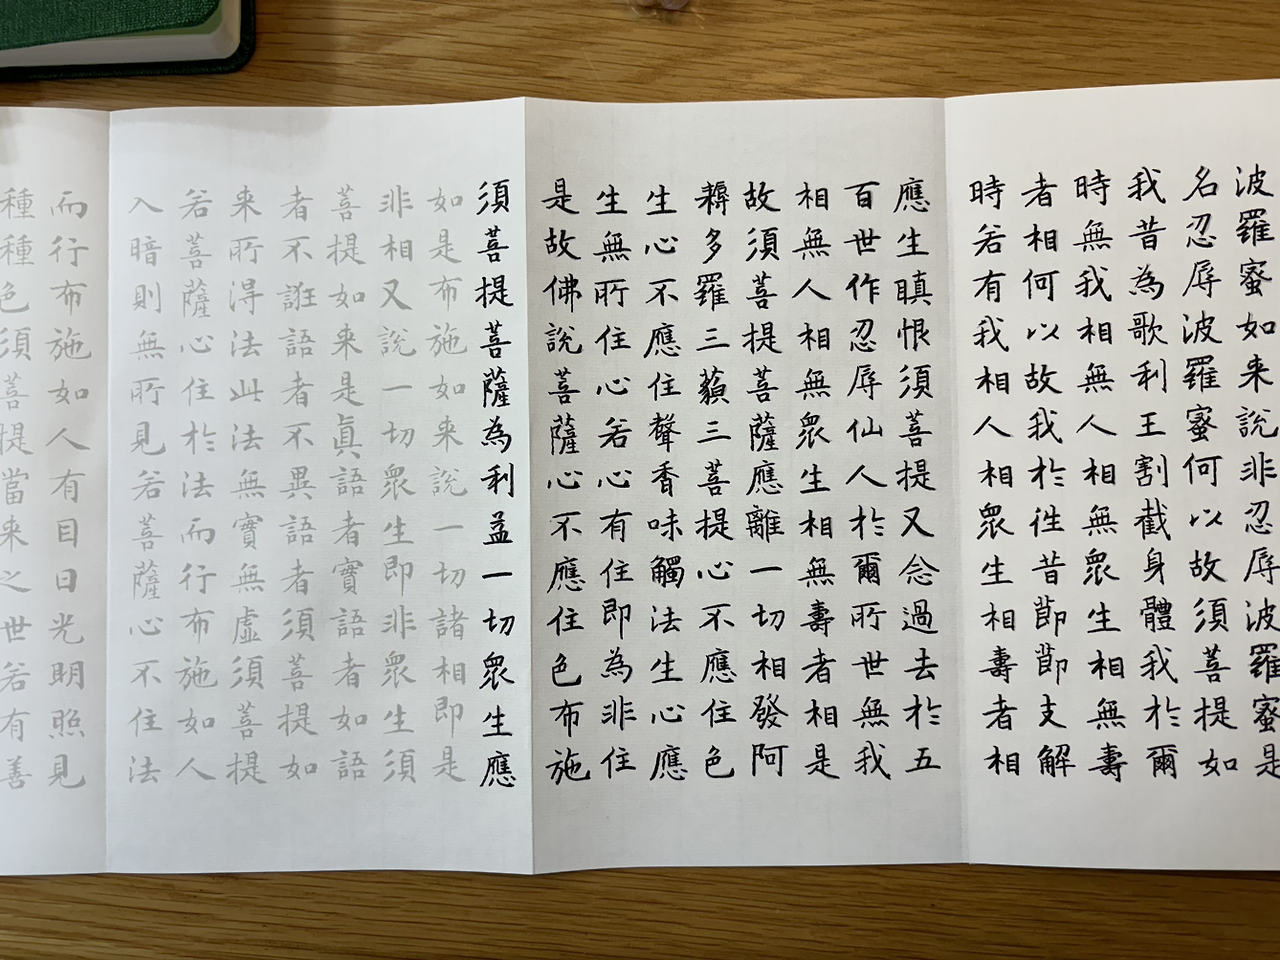 波羅蜜如来說非忍辱波羅蜜是
名忍辱波羅蜜何以故須菩提如
我昔為歌利王割截身體我於爾
時無我相無人相無眾生相無壽
者相何以故我於往昔節節支解
時若有我相人相眾生相壽者相
應生瞋恨須菩提又念過去於五
百世作忍辱仙人於爾所世無我
相無人相無眾生相無壽者相是
故須菩提菩薩應離一切相發阿
耨多羅三藐三菩提心不應住色
生心不應住聲香味觸法生心應
生無所住心若心有住即為非住
是故佛說菩薩心不應住色布施
須菩提菩薩為利益一切眾生應
如是布施如来說一切諸相即是
非相又說一切眾生即非眾生須
菩提如来是真語者實語者如語
者不誑語者不異語者須菩提如
来所得法此法無實無虛須菩提
若菩薩心住於法而行布施如人
入暗則無所見若菩薩心不住法
而行布施如人有目日光明照見
種種色須菩提當来之世若有善